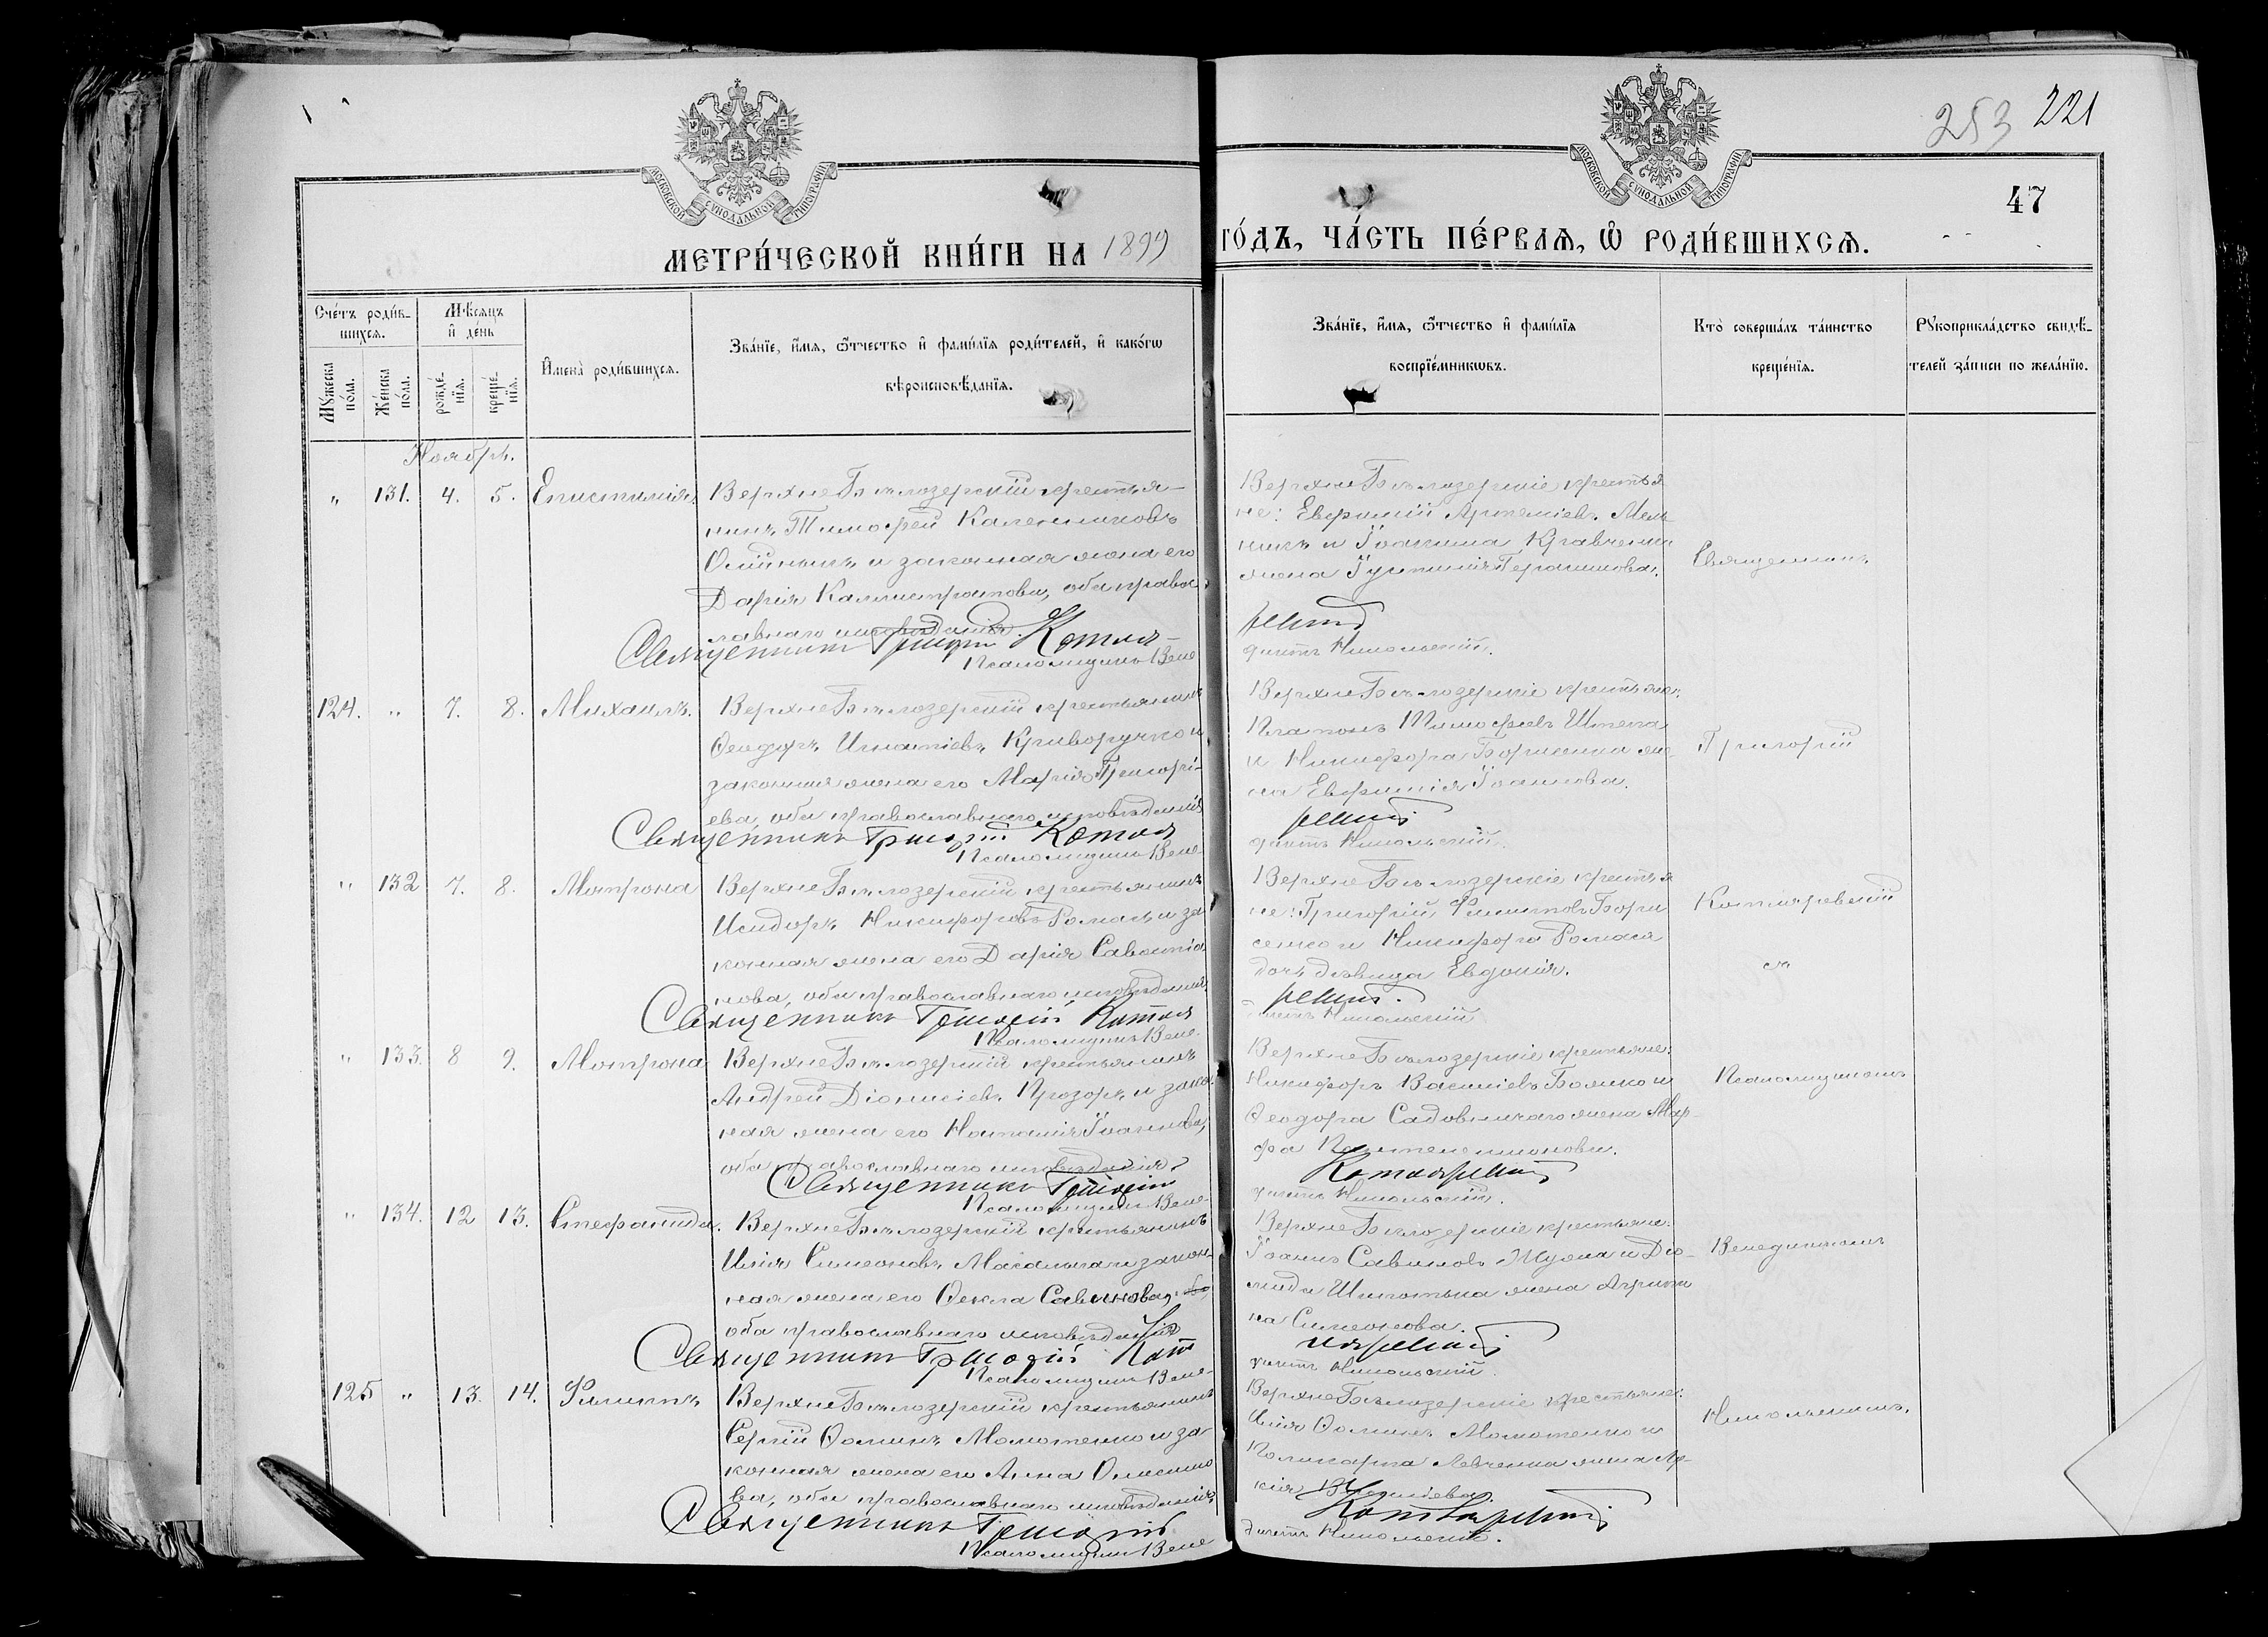 253 221
МОСКОВСКОЙ СѴНОДАЛЬНОЙ ТИПОГРАФІИ
МОСКОВСКОЙ СѴНОДАЛЬНОЙ ТИПОГРАФІИ
47
МЕТРИ́ЧЕСКОЙ КНИ́ГИ НА 1899 ГО́ДЪ, ЧА́СТЬ ПЕ́РВАѦ, Ѽ РОДИ́ВШИХСѦ.
Сче́тъ роди́в-
шихсѧ.
Мѣ́сѧцъ
и҆ де́нь
Мꙋ́жеска
по́ла.
Же́нска
по́ла.
рожде́-
нїѧ.
креще́-
нїѧ.
И҆мена̀ роди́вшихсѧ.
Зва́нїе, и҆́мѧ, ѻ҆́тчество и҆ фами́лїѧ роди́телей, и҆ како́гѡ
вѣроисповѣ́данїѧ.
Зва́нїе, и҆́мѧ, ѻ҆́тчество и҆ фами́лїѧ
воспрїе́мникѡвъ.
Кто̀ соверша́лъ та́инство
креще́нїѧ.
Рꙋкоприкла́дство свидѣ́-
телей за́писи по жела́нїю.
Ноябрь.
" 131. 4. 5. Епистимія
ВерхнеБѣлозерскій крестья-
нинъ Тимофей Каленниковъ
Олійникъ и законная жена его
Дарія Каллистратова, оба право-
славнаго исповѣданія.
Священникъ Григорій Котля-
Псаломщикъ Вене
ВерхнеБѣлозерскіе крестья
не: Евфимій Артеміевъ Мель
никъ и Іоакима Кравченка
жена Іустинія Герасимова.
ревскій
диктъ Никольскій.
Священникъ
124. " 7. 8. Михаилъ.
ВерхнеБѣлозерскій крестьянинъ
Ѳеодоръ Игнатіевъ Криворучко и
законная жена его Марія Григорі-
ева, оба православнаго исповѣданія
Священникъ Григорій Котля
Псаломщикъ Вене-
ВерхнеБѣлозерскіе крестьяне:
Платонъ Тимофеевъ Штепа
и Никифора Борисенка же-
на Евфимія Іоаннова.
ревскій
диктъ Никольскій.
Григорій
" 132 7. 8. Матрона
ВерхнеБѣлозерскій крестьянинъ
Исидоръ Никифоровъ Ромась и за
конная жена его Дарія Савватіа
нова, оба православнаго исповѣданія.
Священникъ Григорій Котля
Псаломщикъ Вене-
ВерхнеБѣлозерскіе крестья
не: Григорій Филиповъ Бори
сенко и Никифора Ромася
дочь дѣвица Евдокія.
ревскій.
диктъ Никольскій
Котляревскій
съ
" 133. 8 9. Матрона
ВерхнеБѣлозерскій крестьянинъ
Андрей Діонисіевъ Прозоръ и закон
ная жена его Наталія Іоаннова,
оба православнаго исповѣданія.
Священникъ Григорій
Псаломщикъ Вене-
ВерхнеБѣлозерскіе крестьяне:
Никифоръ Василіевъ Божко и
Ѳеодора Садовничаго жена Мар-
фа Пантелеимонова.
Котляревскій
диктъ Никольскій.
Псаломщикомъ
" 134. 12 13. Стефанида.
ВерхнеБѣлозерскій крестьянинъ
Илія Симеоновъ и закон-
ная жена его Ѳекла Савинова,
оба православнаго исповѣданія
Священникъ Григорій Кот
Псаломщикъ Вене-
ВерхнеБѣлозерскіе крестьяне:
Іоаннъ Савиновъ и Діо-
мида жена Агрипи
на Симеонова.
ляревскій
диктъ Никольскій.
Венедиктомъ
125 " 13. 14. Филиппъ
ВерхнеБѣлозерскій крестьянинъ
Сергій Ѳоминъ и за
конная жена его Анна
ва, оба православнаго исповѣданія.
Священникъ Григорій
Псаломщикъ Вене
ВерхнеБѣлозерскіе крестьяне:
Илія Ѳоминъ и
Поликарпа Левченка жена
Василіева.
Котляревскій
диктъ Никольскій.
Никольскимъ.